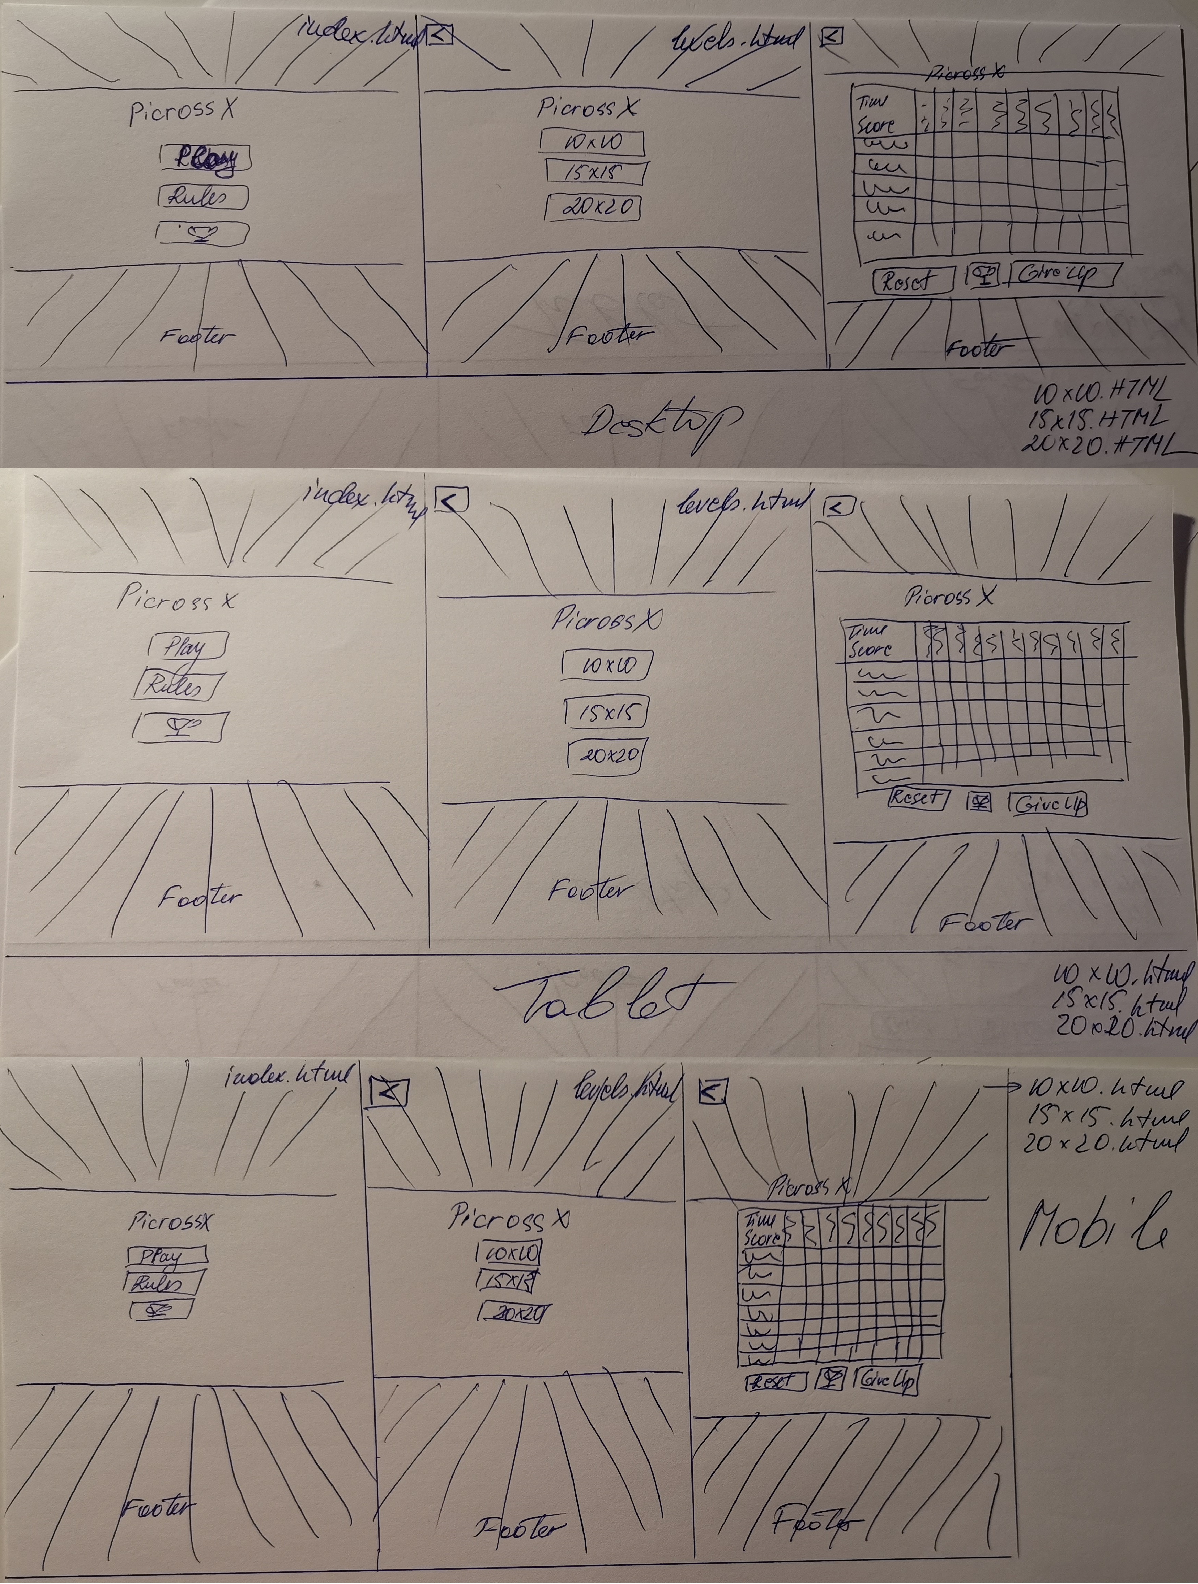 index.html
Picross X
Play
Rules
Footer
<
levels.html
Picross X
10x10
15x15
20x20
Footer
<
Picross X
Time
Score
Reset
Give Up
Footer
Desktop
10x10.HTML
15x15.HTML
20x20.HTML
index.html
Picross X
Play
Rules
Footer
<
levels.html
Picross X
10x10
15x15
20x20
Footer
<
Picross X
Time
Score
Reset
Give Up
Footer
Tablet
10x10.html
15x15.html
20x20.html
index.html
Picross X
Play
Rules
Footer
<
levels.html
Picross X
10x10
15x15
20x20
Footer
<
Picross X
Time
Score
Reset
Give Up
Footer
→ 10x10.html
15x15.html
20x20.html
Mobile